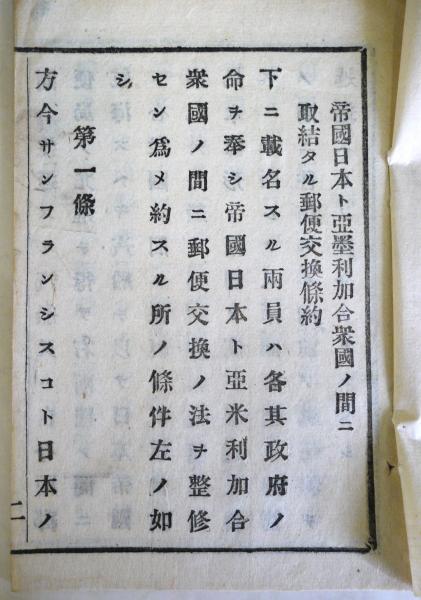 帝國日本ト亞墨利加合衆國ノ間ニ
取結タル郵便交換條約
下ニ載名スル兩員ハ各其政府ノ
命ヲ奉シ帝國日本ト亞米利加合
衆國ノ間ニ郵便交換ノ法ヲ整修
セン爲メ約スル所ノ條件左ノ如
シ
第一條
方今サンフランシスコト日本ノ
二